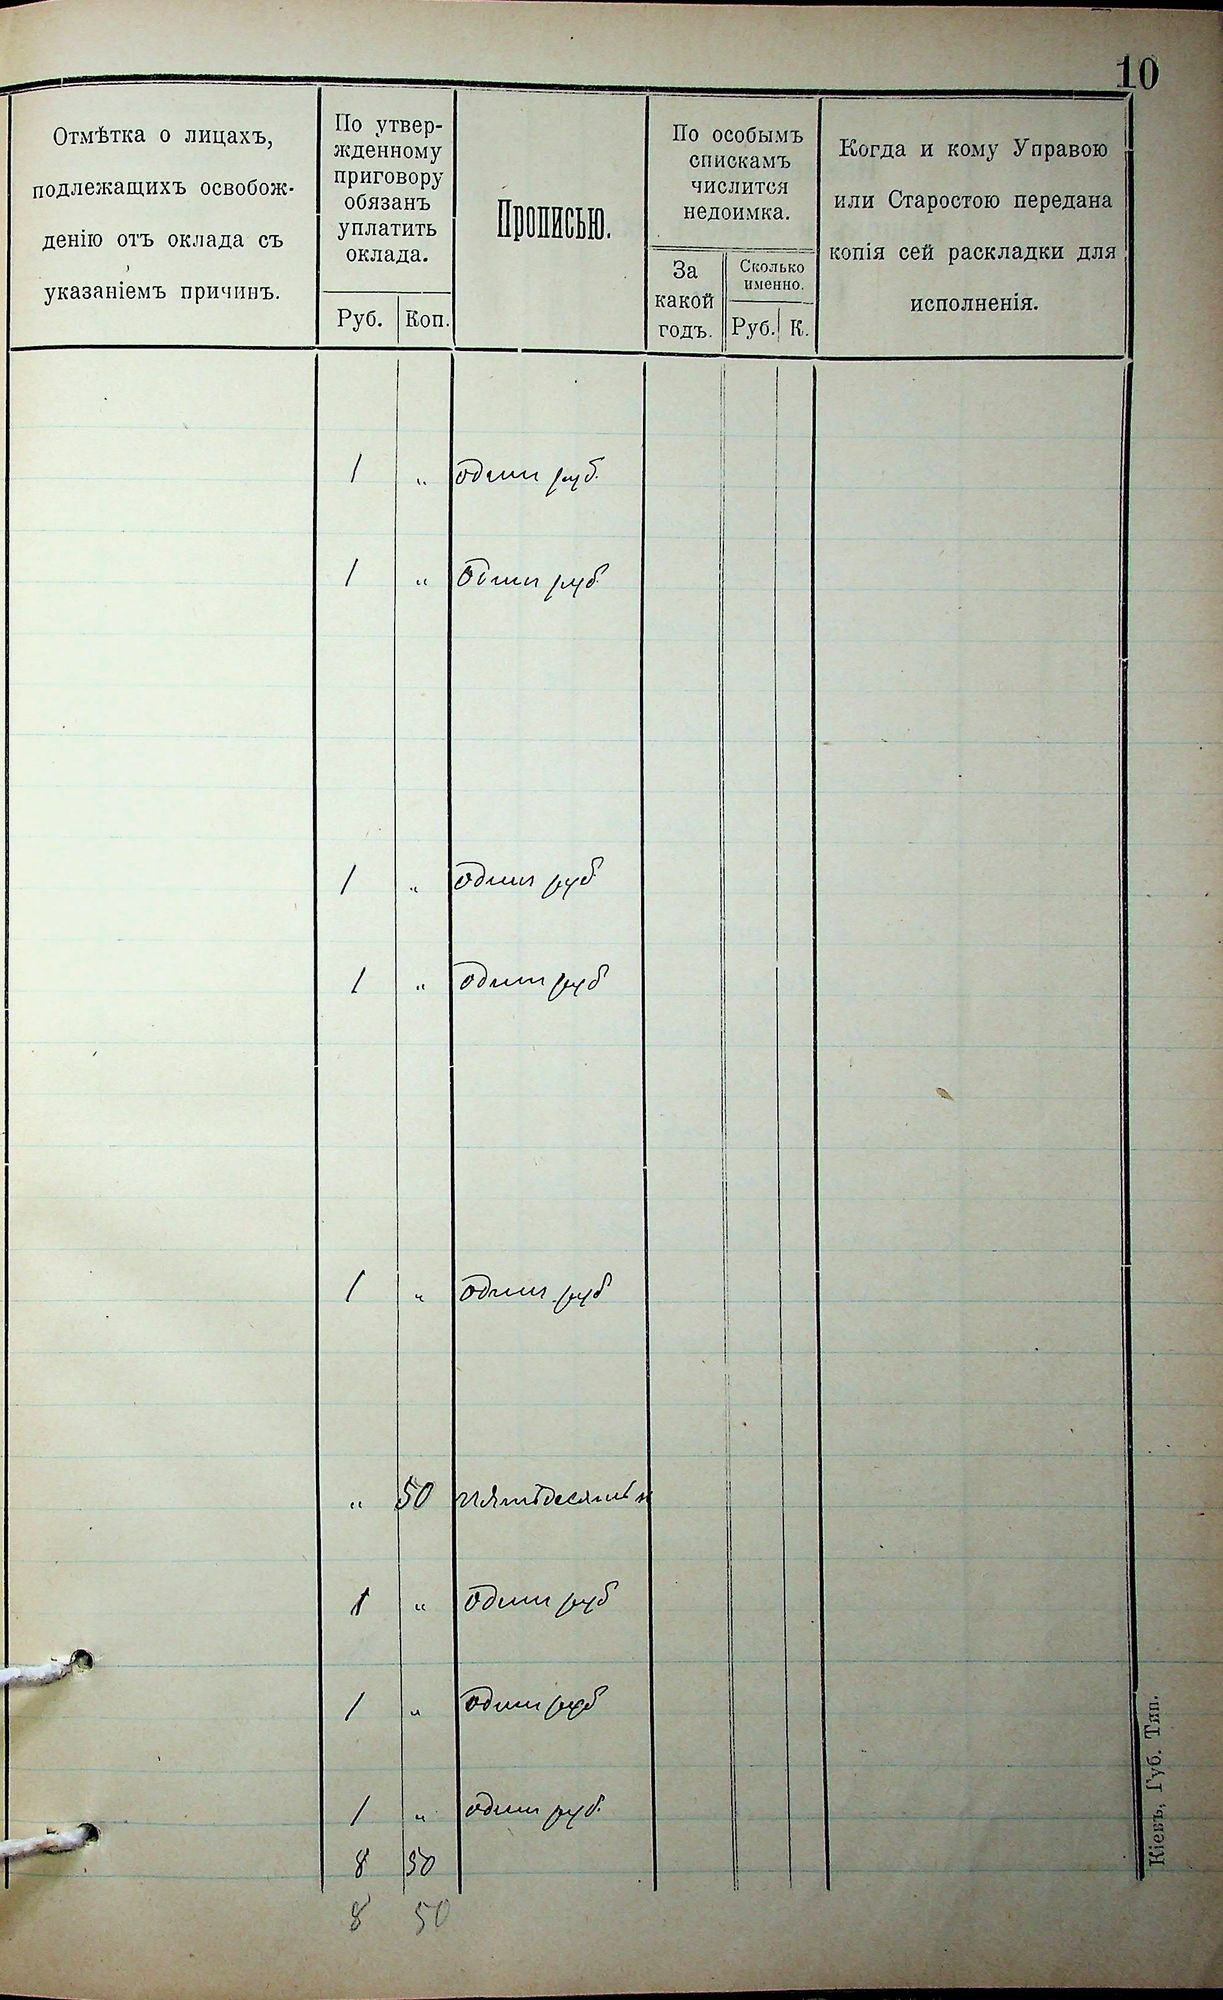 10
Отмѣтка о лицахъ,
подлежащихъ освобож-
денію отъ оклада съ
указаніемъ причинъ.
По утвер-
жденному
приговору
обязанъ
уплатить
оклада.
Руб. Коп.
Прописью.
По особымъ
спискамъ
числится
недоимка.
За
какой
годъ.
Сколько
именно.
Руб. К.
Когда и кому Управою
или Старостою передана
копія сей раскладки для
исполненія.
1 „ один руб.
1 „ один руб.
1 „ один руб
1 „ один руб
1 „ один руб
„ 50 пятьдесять к
1 „ один руб
1 „ один руб
1 „ один руб.
8 50
8 50
Кіевъ, Губ. Тип.